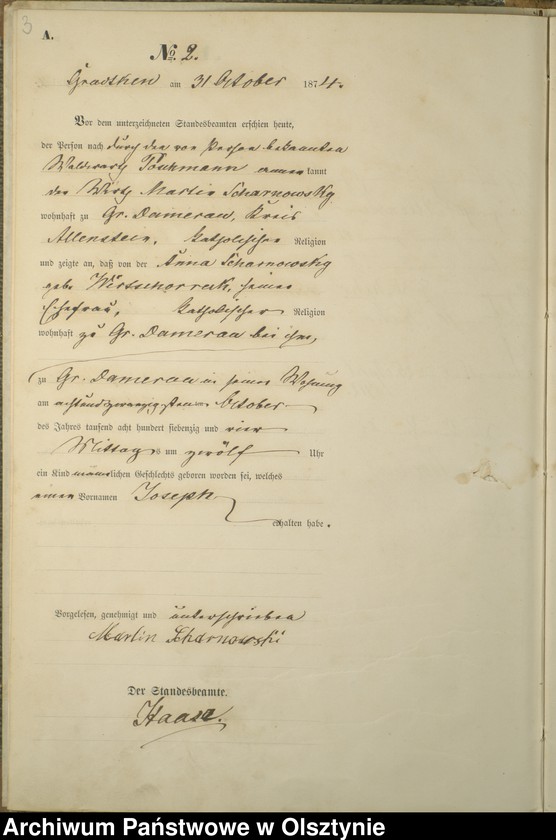 3
A.
No. 2.
am 31 October 1874.
Vor dem unterzeichneten Standesbeamten erschien heute,
der Person nach durch den von Person bekannten
Tockmann anerkannt
der Wirth Martin Scharnowsky
wohnhaft zu Gr. Damerau, Kreis
Allenstein, katholischer Religion
und zeigte an, daß von der Anna Scharnowsky
geb. seiner
Ehefrau, katholischer Religion
wohnhaft zu Gr. Damerau bei ihm,
zu Gr. Damerau in seiner Wohnung
am achtundzwanzigsten October
des Jahres tausend acht hundert siebenzig und vier
Mittags um zwölf Uhr
ein Kind männlichen Geschlechts geboren worden sei, welches
einen Vornamen Joseph
erhalten habe.
Vorgelesen, genehmigt und unterschrieben
Martin Scharnowski
Der Standesbeamte.
Haase.
Archiwum Państwowe w Olsztynie